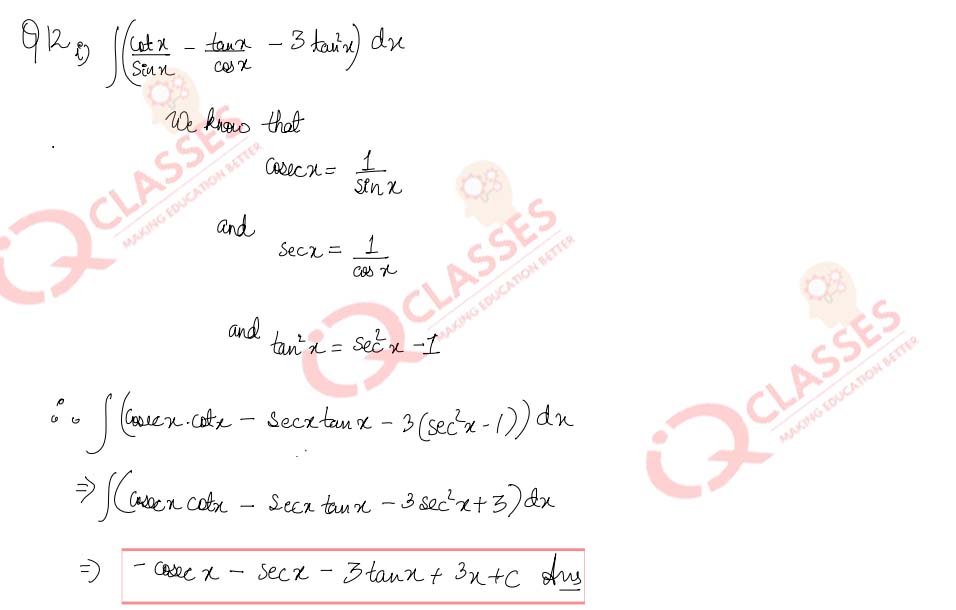 Q12 i) ∫(cotx/sinx − tanx/cosx − 3tan²x) dx
We know that
cosecx = 1/sinx
and
secx = 1/cosx
and tan²x = sec²x −1
∴ ∫(cosecx.cotx − secxtanx − 3(sec²x−1)) dx
⇒ ∫(cosecx cotx − secx tanx − 3sec²x+3) dx
⇒ −cosecx − secx − 3tanx + 3x+c Ans
iQ CLASSES
MAKING EDUCATION BETTER
iQ CLASSES
MAKING EDUCATION BETTER
iQ CLASSES
MAKING EDUCATION BETTER